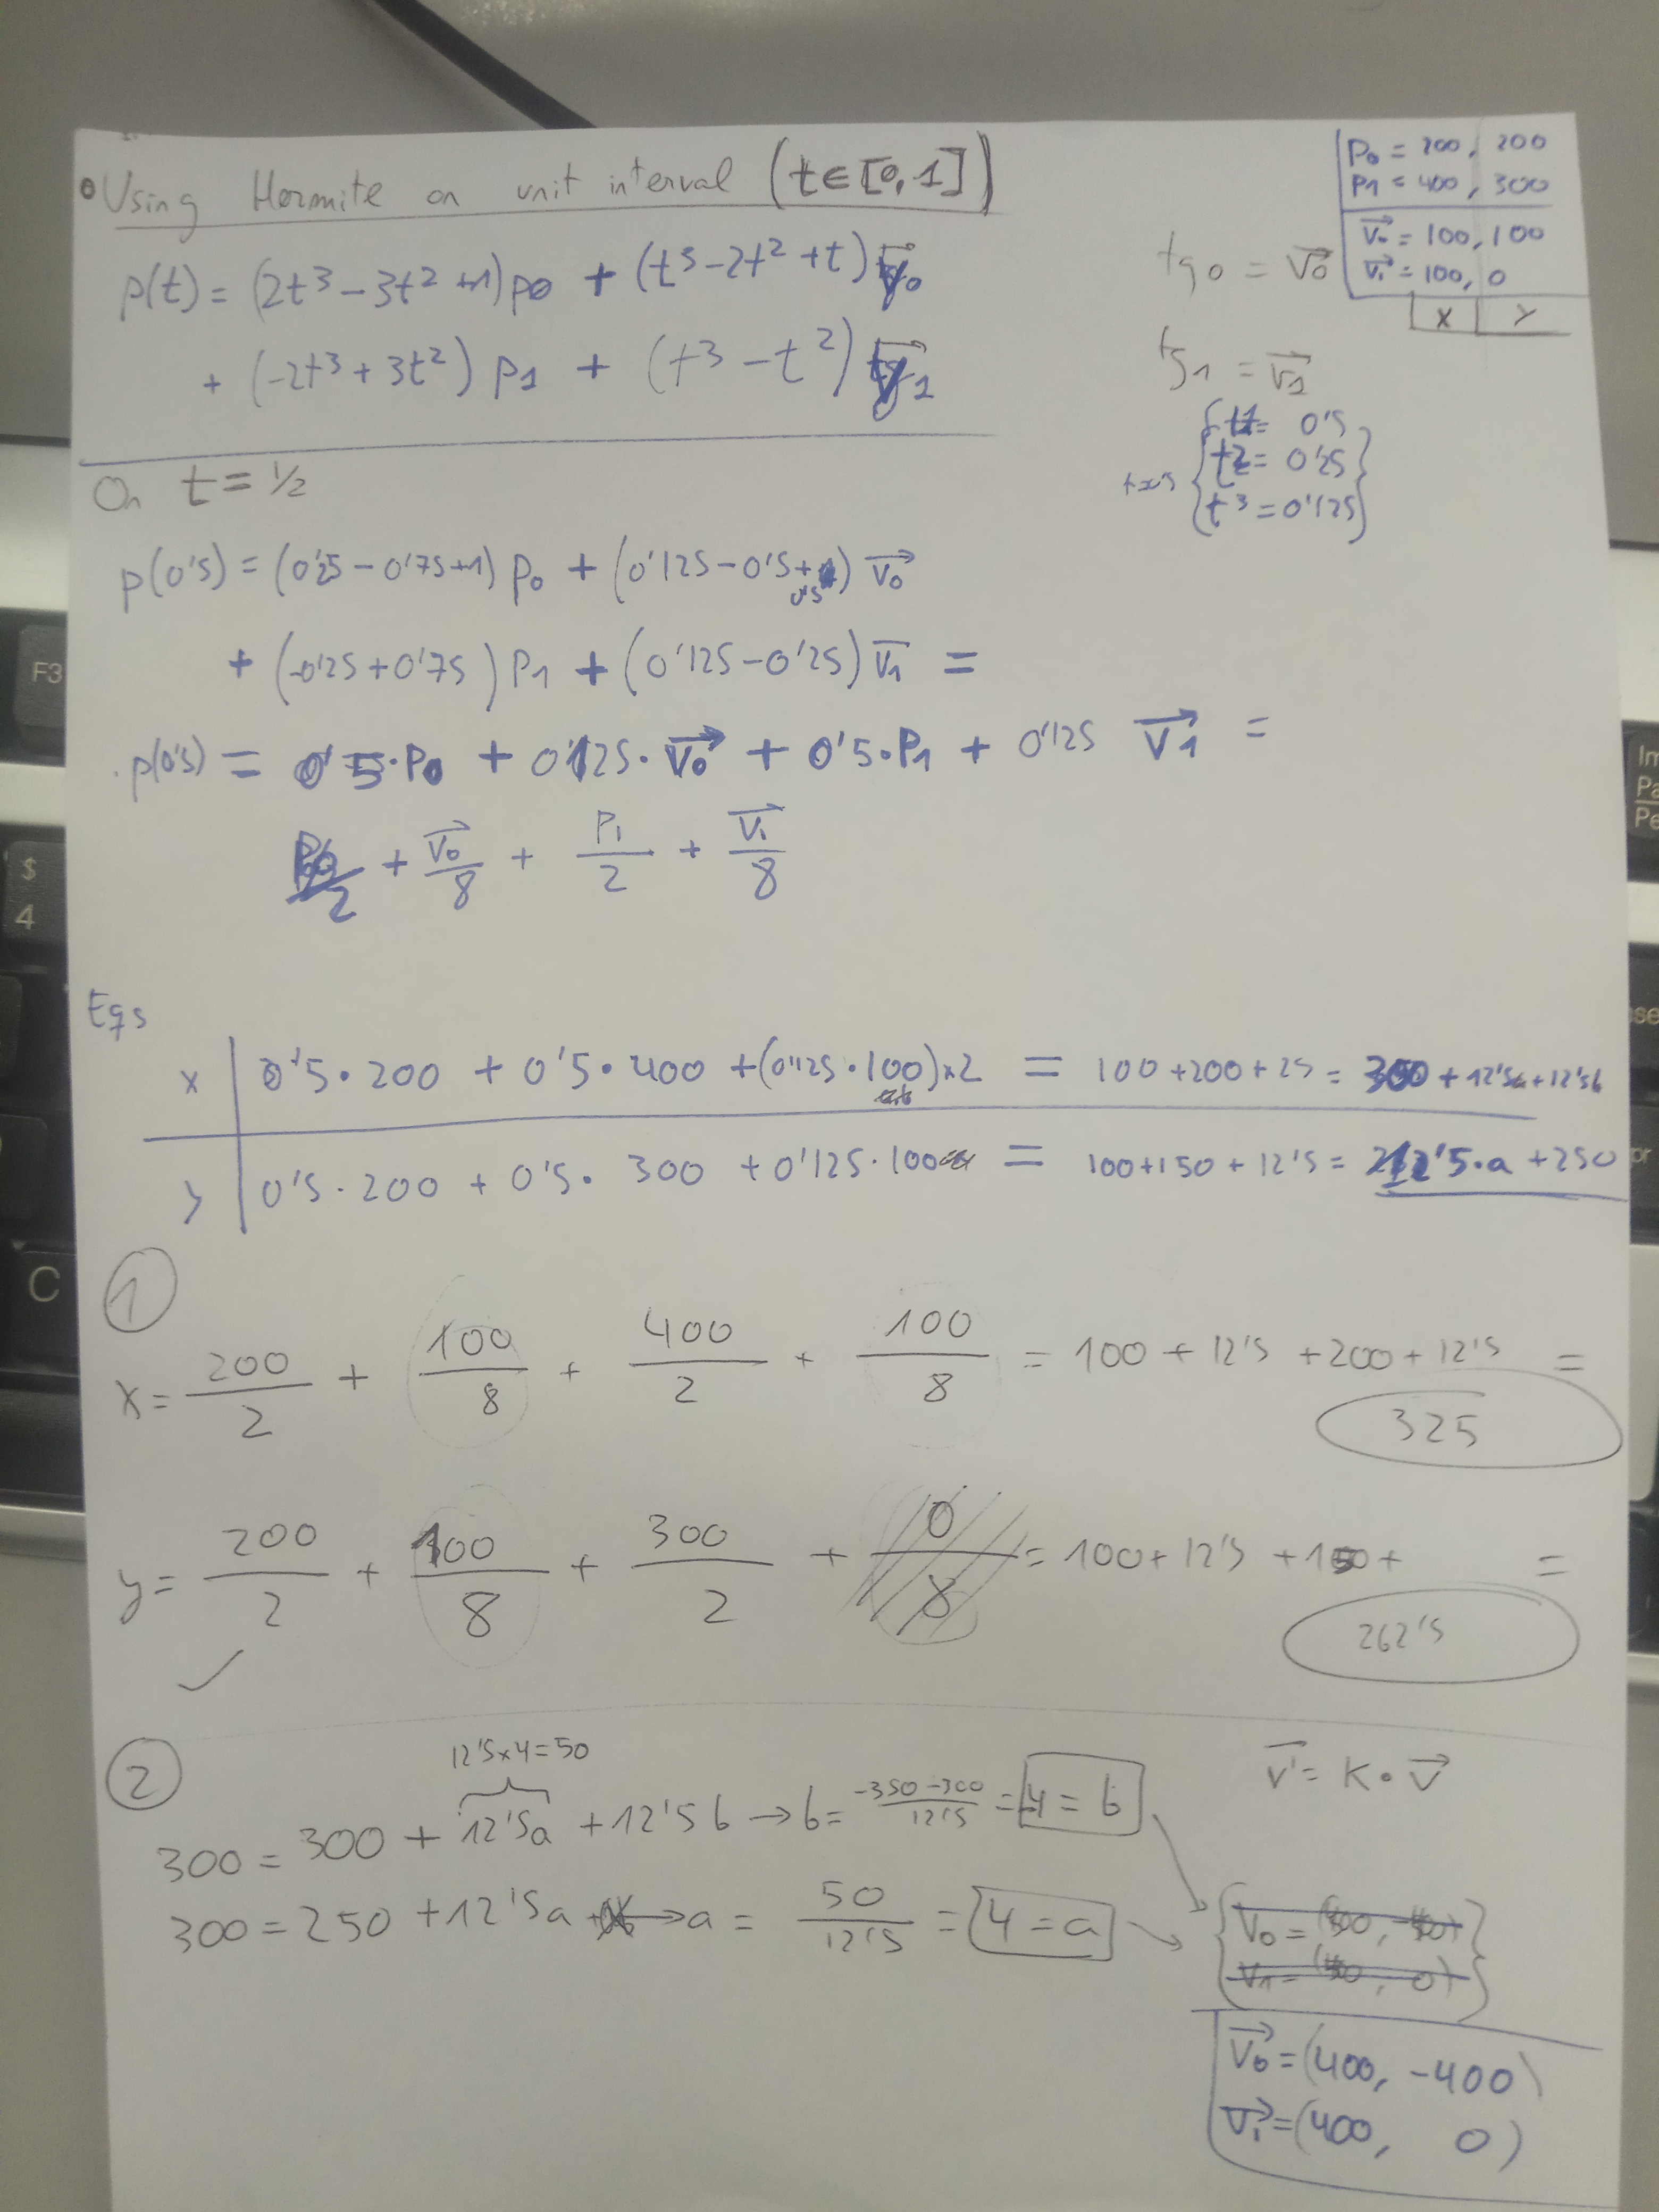 Using Hermite on unit interval (t∈[0,1])
P0 = 200, 200
P1 = 400, 300
V0 = 100, 100
V1 = 100, 0
X Y
p(t) = (2t³ - 3t² + 1) p0 + (t³ - 2t² + t) V0
+ (-2t³ + 3t²) p1 + (t³ - t²) V1
tg0 = V0
tg1 = V1
t1= 0'5
t2= 0'25
t³ = 0'125
On t = 1/2
p(0'5) = (0'25 - 0'75 + 1) p0 + (0'125 - 0'5 + 0'5) V0
+ (-0'25 + 0'75) P1 + (0'125 - 0'25) V1 =
p(0'5) = 0'5·P0 + 0'125·V0 + 0'5·P1 + 0'125 V1 =
P0/2 + V0/8 + P1/2 + V1/8
Eqs
x | 0'5·200 + 0'5·400 + (0'125·100)x2 = 100 + 200 + 25 = 300 + 12'5a + 12'5b
y | 0'5·200 + 0'5·300 + 0'125·100 = 100 + 150 + 12'5 = 12'5·a + 250
1
x = 200/2 + 100/8 + 400/2 + 100/8 = 100 + 12'5 + 200 + 12'5 =
325
y = 200/2 + 100/8 + 300/2 + 0/8 = 100 + 12'5 + 150 + =
262'5
2
12'5x4=50
V' = K·V
300 = 300 + 12'5a + 12'5b → b = -350-300/12'5 = -4 = b
300 = 250 + 12'5a → a = 50/12'5 = 4 = a
V0 = (400, -400)
V1 = (400, 0)
F3
$
4
C
Im
Pa
Pe